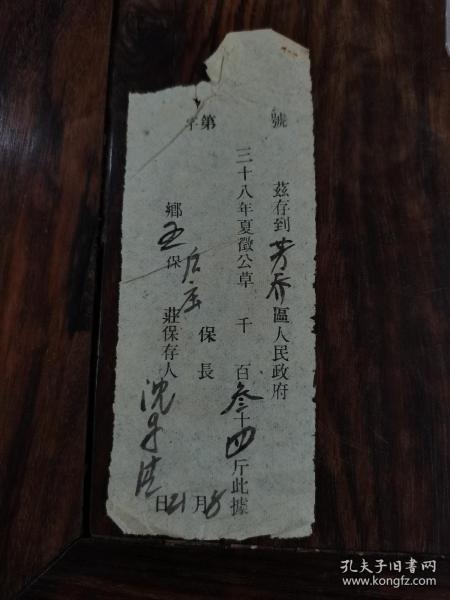 字第 號
茲存到芳桥區人民政府
三十八年夏徵公草 千 百叁十四斤此據
保長
鄉五保后庄莊保存人沈
8月21日
孔夫子旧书网
www.kongfz.com